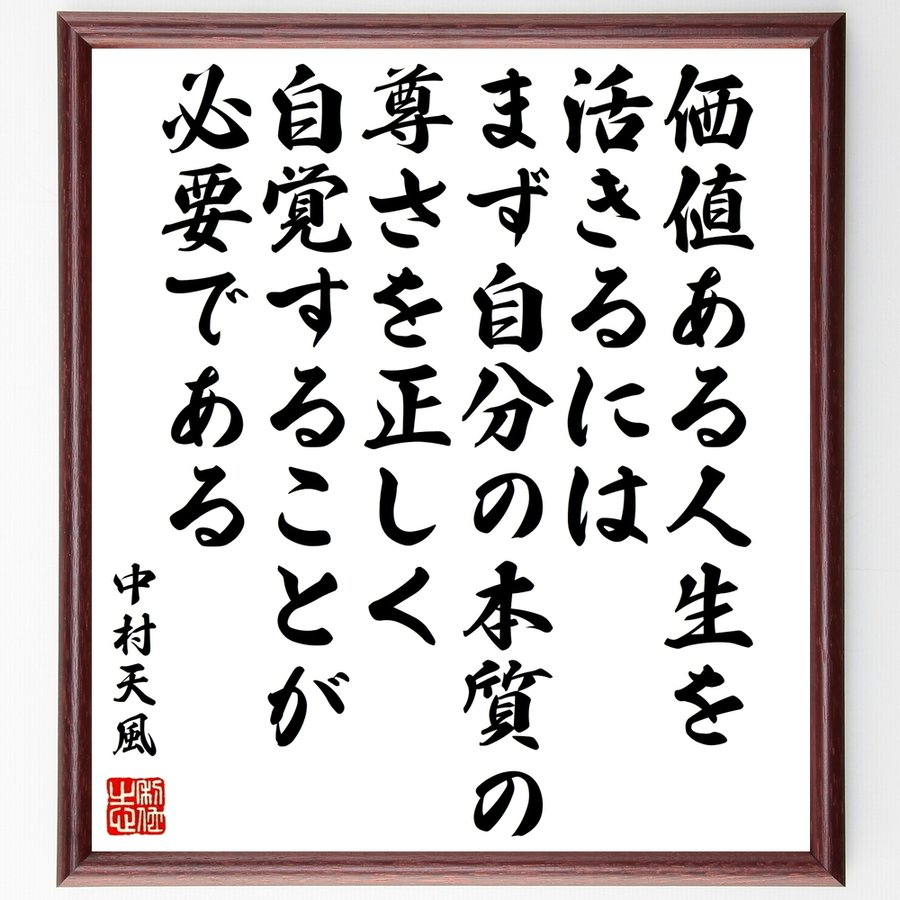 価値ある人生を
活きるには
まず自分の本質の
尊さを正しく
自覚することが
必要である
中村天風